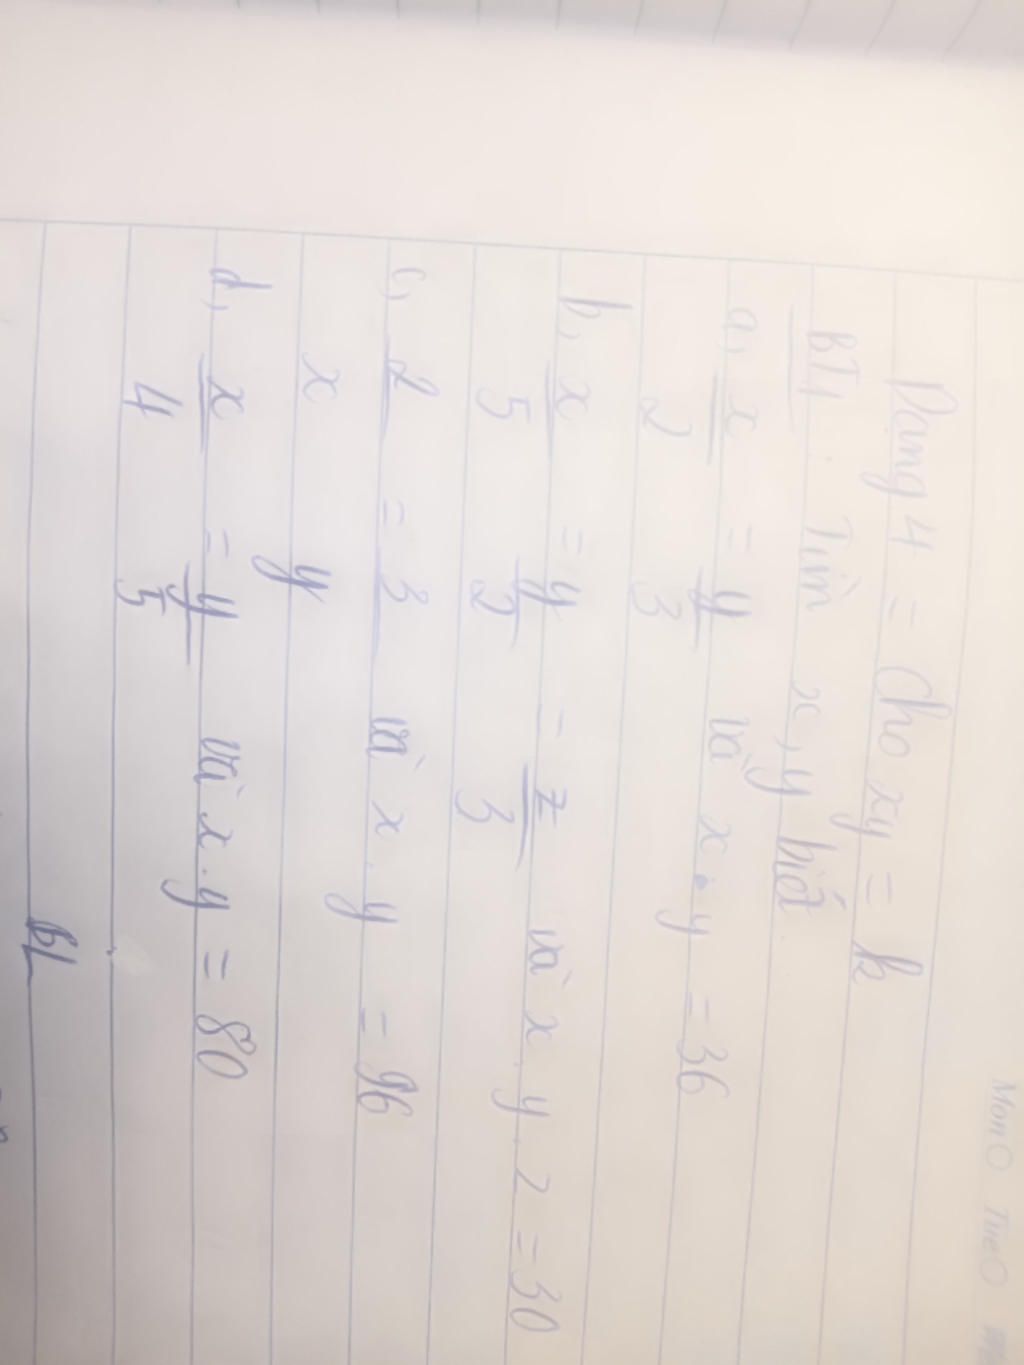 Mon Tue
Dạng 4 = Cho xy = k
BT1 : Tìm x, y biết
a, x/2 = y/3 và x . y = 36
b, x/5 = y/2 = z/3 và x . y . z = 30
c, 2/x = 3/y và x . y = 96
d, x/4 = y/5 và x . y = 80
BL